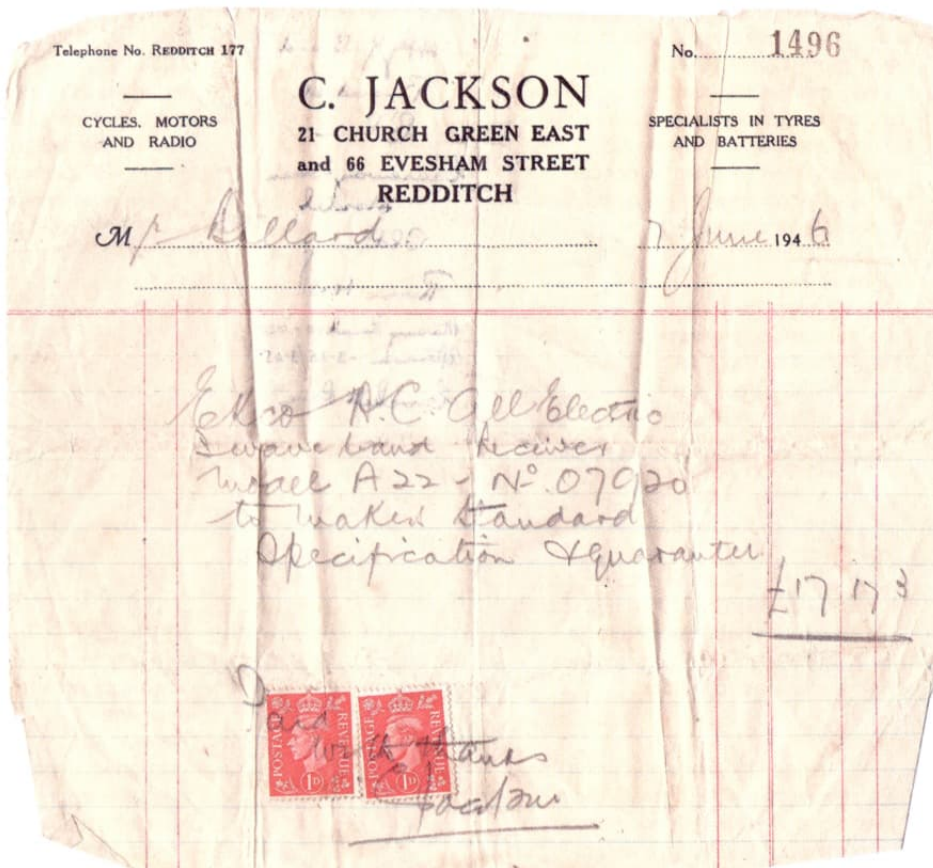 Telephone No. REDDITCH 177
No. 1496
C. JACKSON
CYCLES. MOTORS
AND RADIO
21 CHURCH GREEN EAST
and 66 EVESHAM STREET
REDDITCH
SPECIALISTS IN TYRES
AND BATTERIES
Mr Ballard. 7 June 1946
Ekco A.C. All Electric
3 wave band Receiver
Model A 22 - No. 07920
to Makers Standard
Specification & Guarantee
£17 17 3
Paid
with thanks
C Jackson
POSTAGE REVENUE 1D
POSTAGE REVENUE 1D